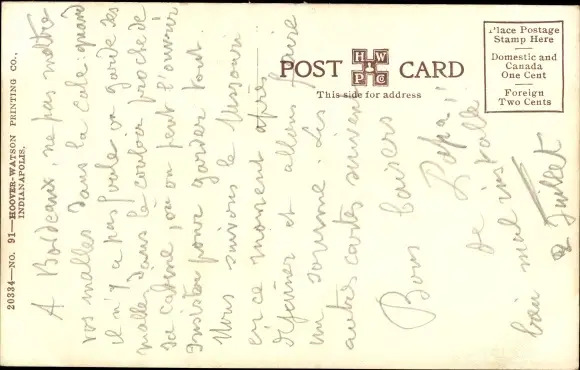 A Bordeaux, ne pas mettre
vos malles dans la cale : quand
il n'y a pas foule on garde ses
malles dans le couloir proche de
sa cabine, où on peut l'ouvrir
Insister pour garder tout.
Nous suivons le Missouri
en ce moment après
déjeuner et allons faire
un somme. Les
autres cartes suivent
Bons baisers
Papa!
bien mal installé
2 Juillet
POST CARD
HWPC
This side for address
Place Postage
Stamp Here
Domestic and
Canada
One Cent
Foreign
Two Cents
20334—NO. 91—HOOVER-WATSON PRINTING CO.,
INDIANAPOLIS.